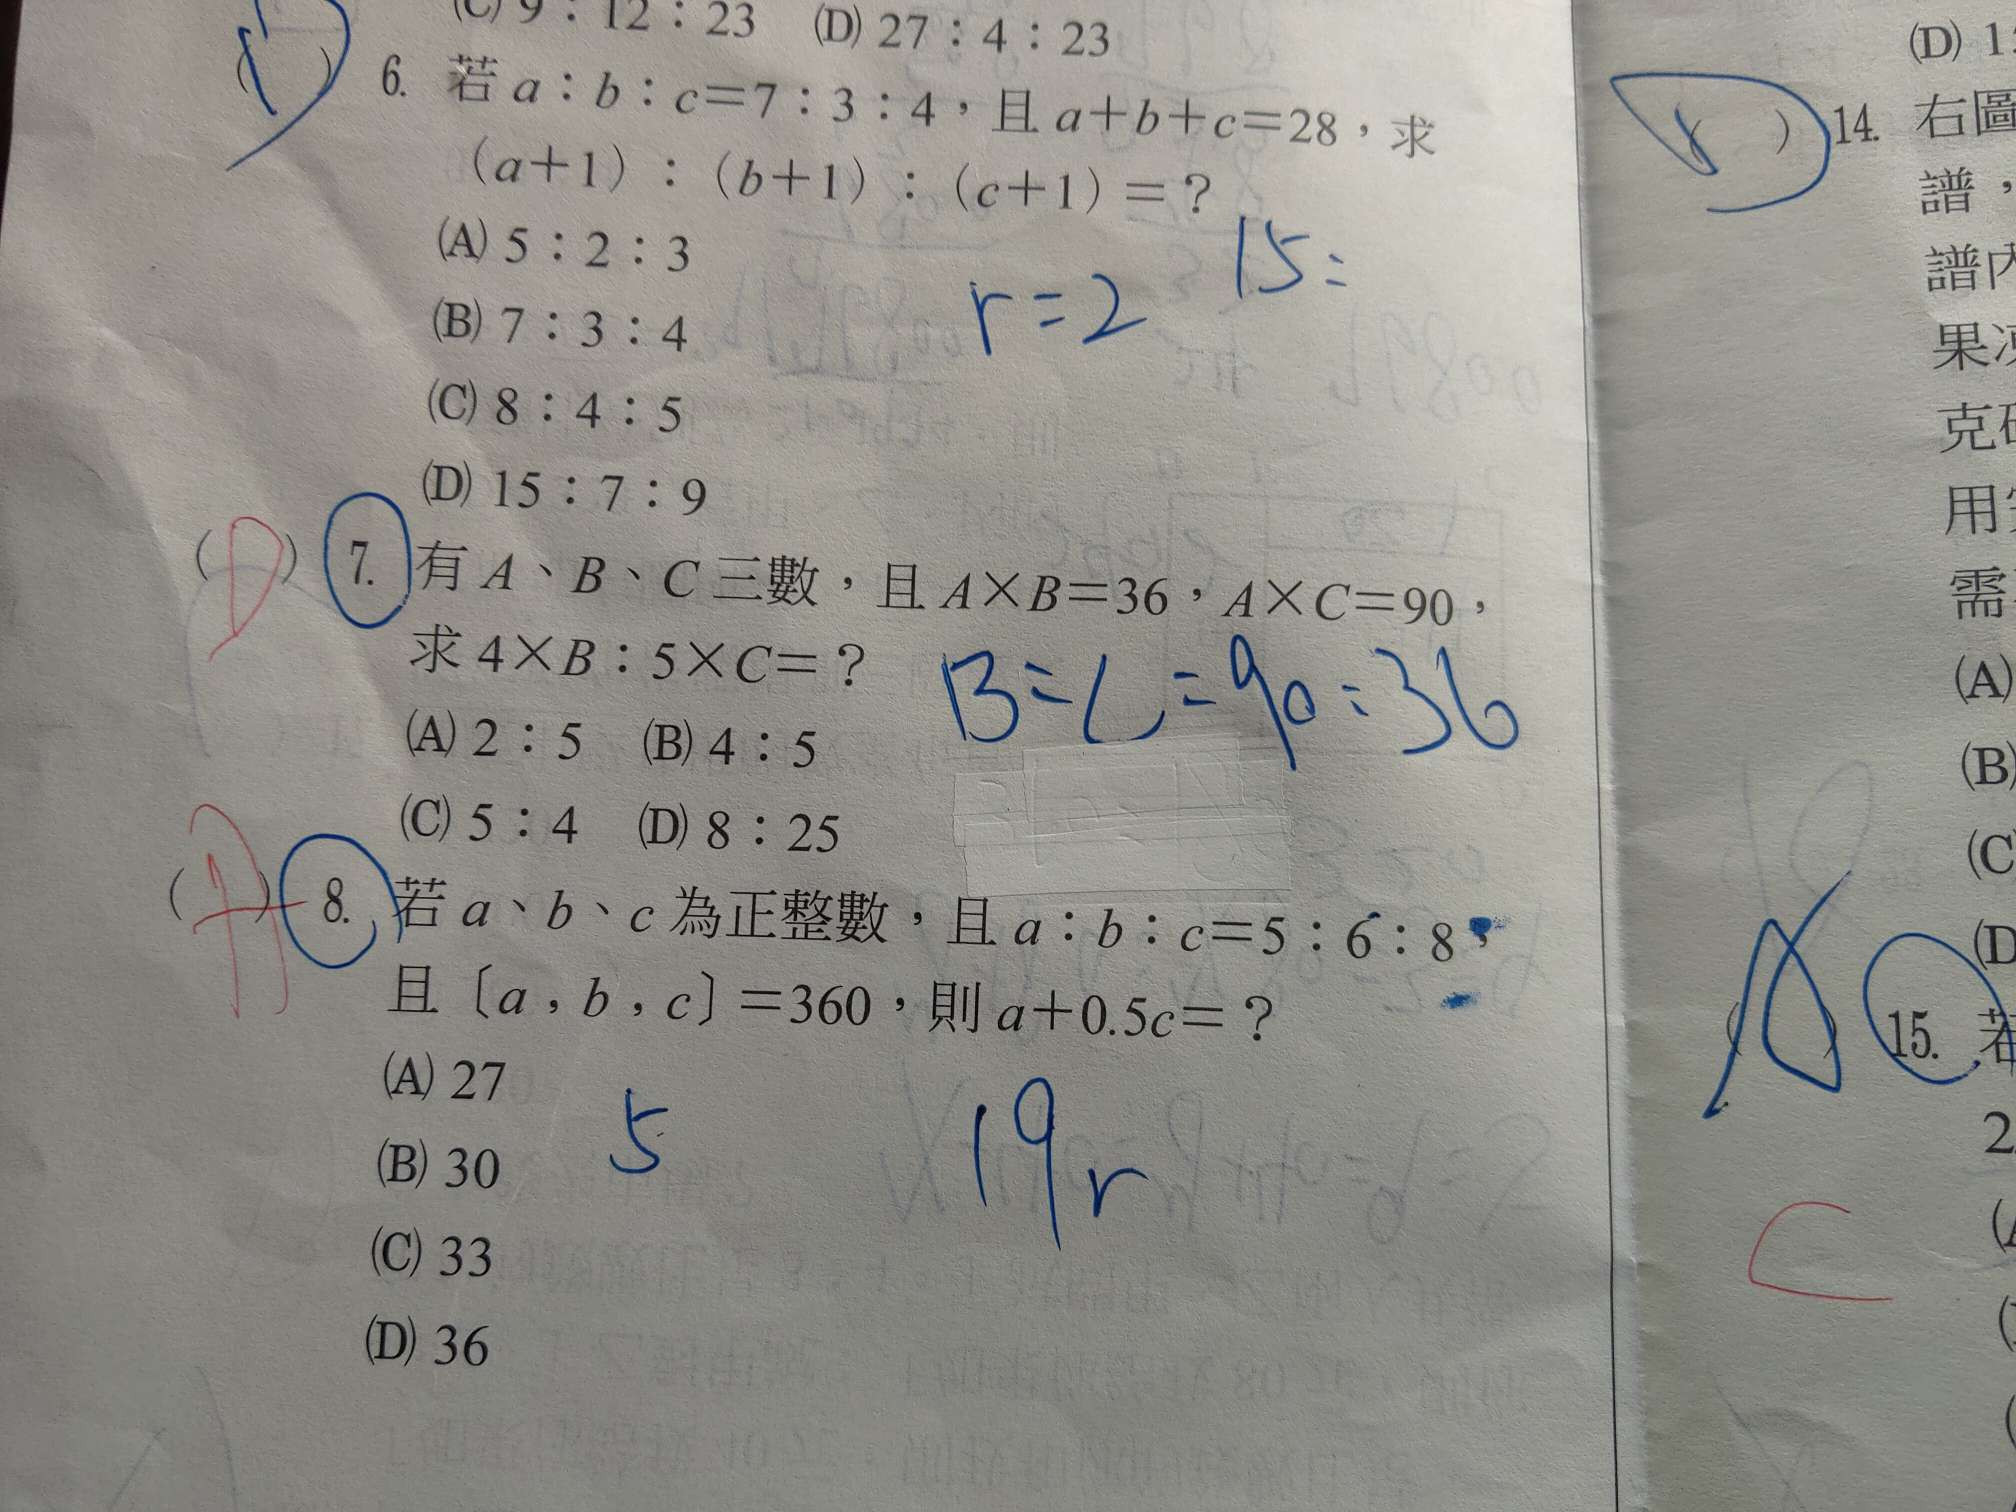 (C) 9：12：23 (D) 27：4：23
( ) 6. 若 a：b：c＝7：3：4，且 a＋b＋c＝28，求
(a＋1)：(b＋1)：(c＋1)＝？
(A) 5：2：3
15:
(B) 7：3：4
r=2
(C) 8：4：5
(D) 15：7：9
(D) 7. 有 A、B、C 三數，且 A×B＝36，A×C＝90，
求 4×B：5×C＝？
B=C=90:36
(A) 2：5 (B) 4：5
(C) 5：4 (D) 8：25
(A) 8. 若 a、b、c 為正整數，且 a：b：c＝5：6：8，
且〔a，b，c〕＝360，則 a＋0.5c＝？
(A) 27
5 19r
(B) 30
(C) 33
(D) 36
(D) 1
D
( ) 14. 右圖
譜，
譜內
果凍
克
用
需
(A)
(B)
(C
(D
(A) 15. 若
2
C